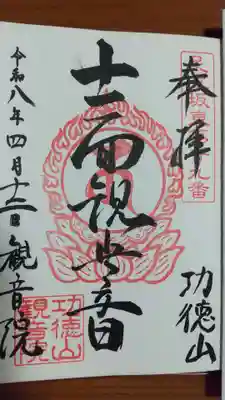 奉拝
功徳山
十一面観世音
令和八年四月十二日 観音院
功徳山
観音院